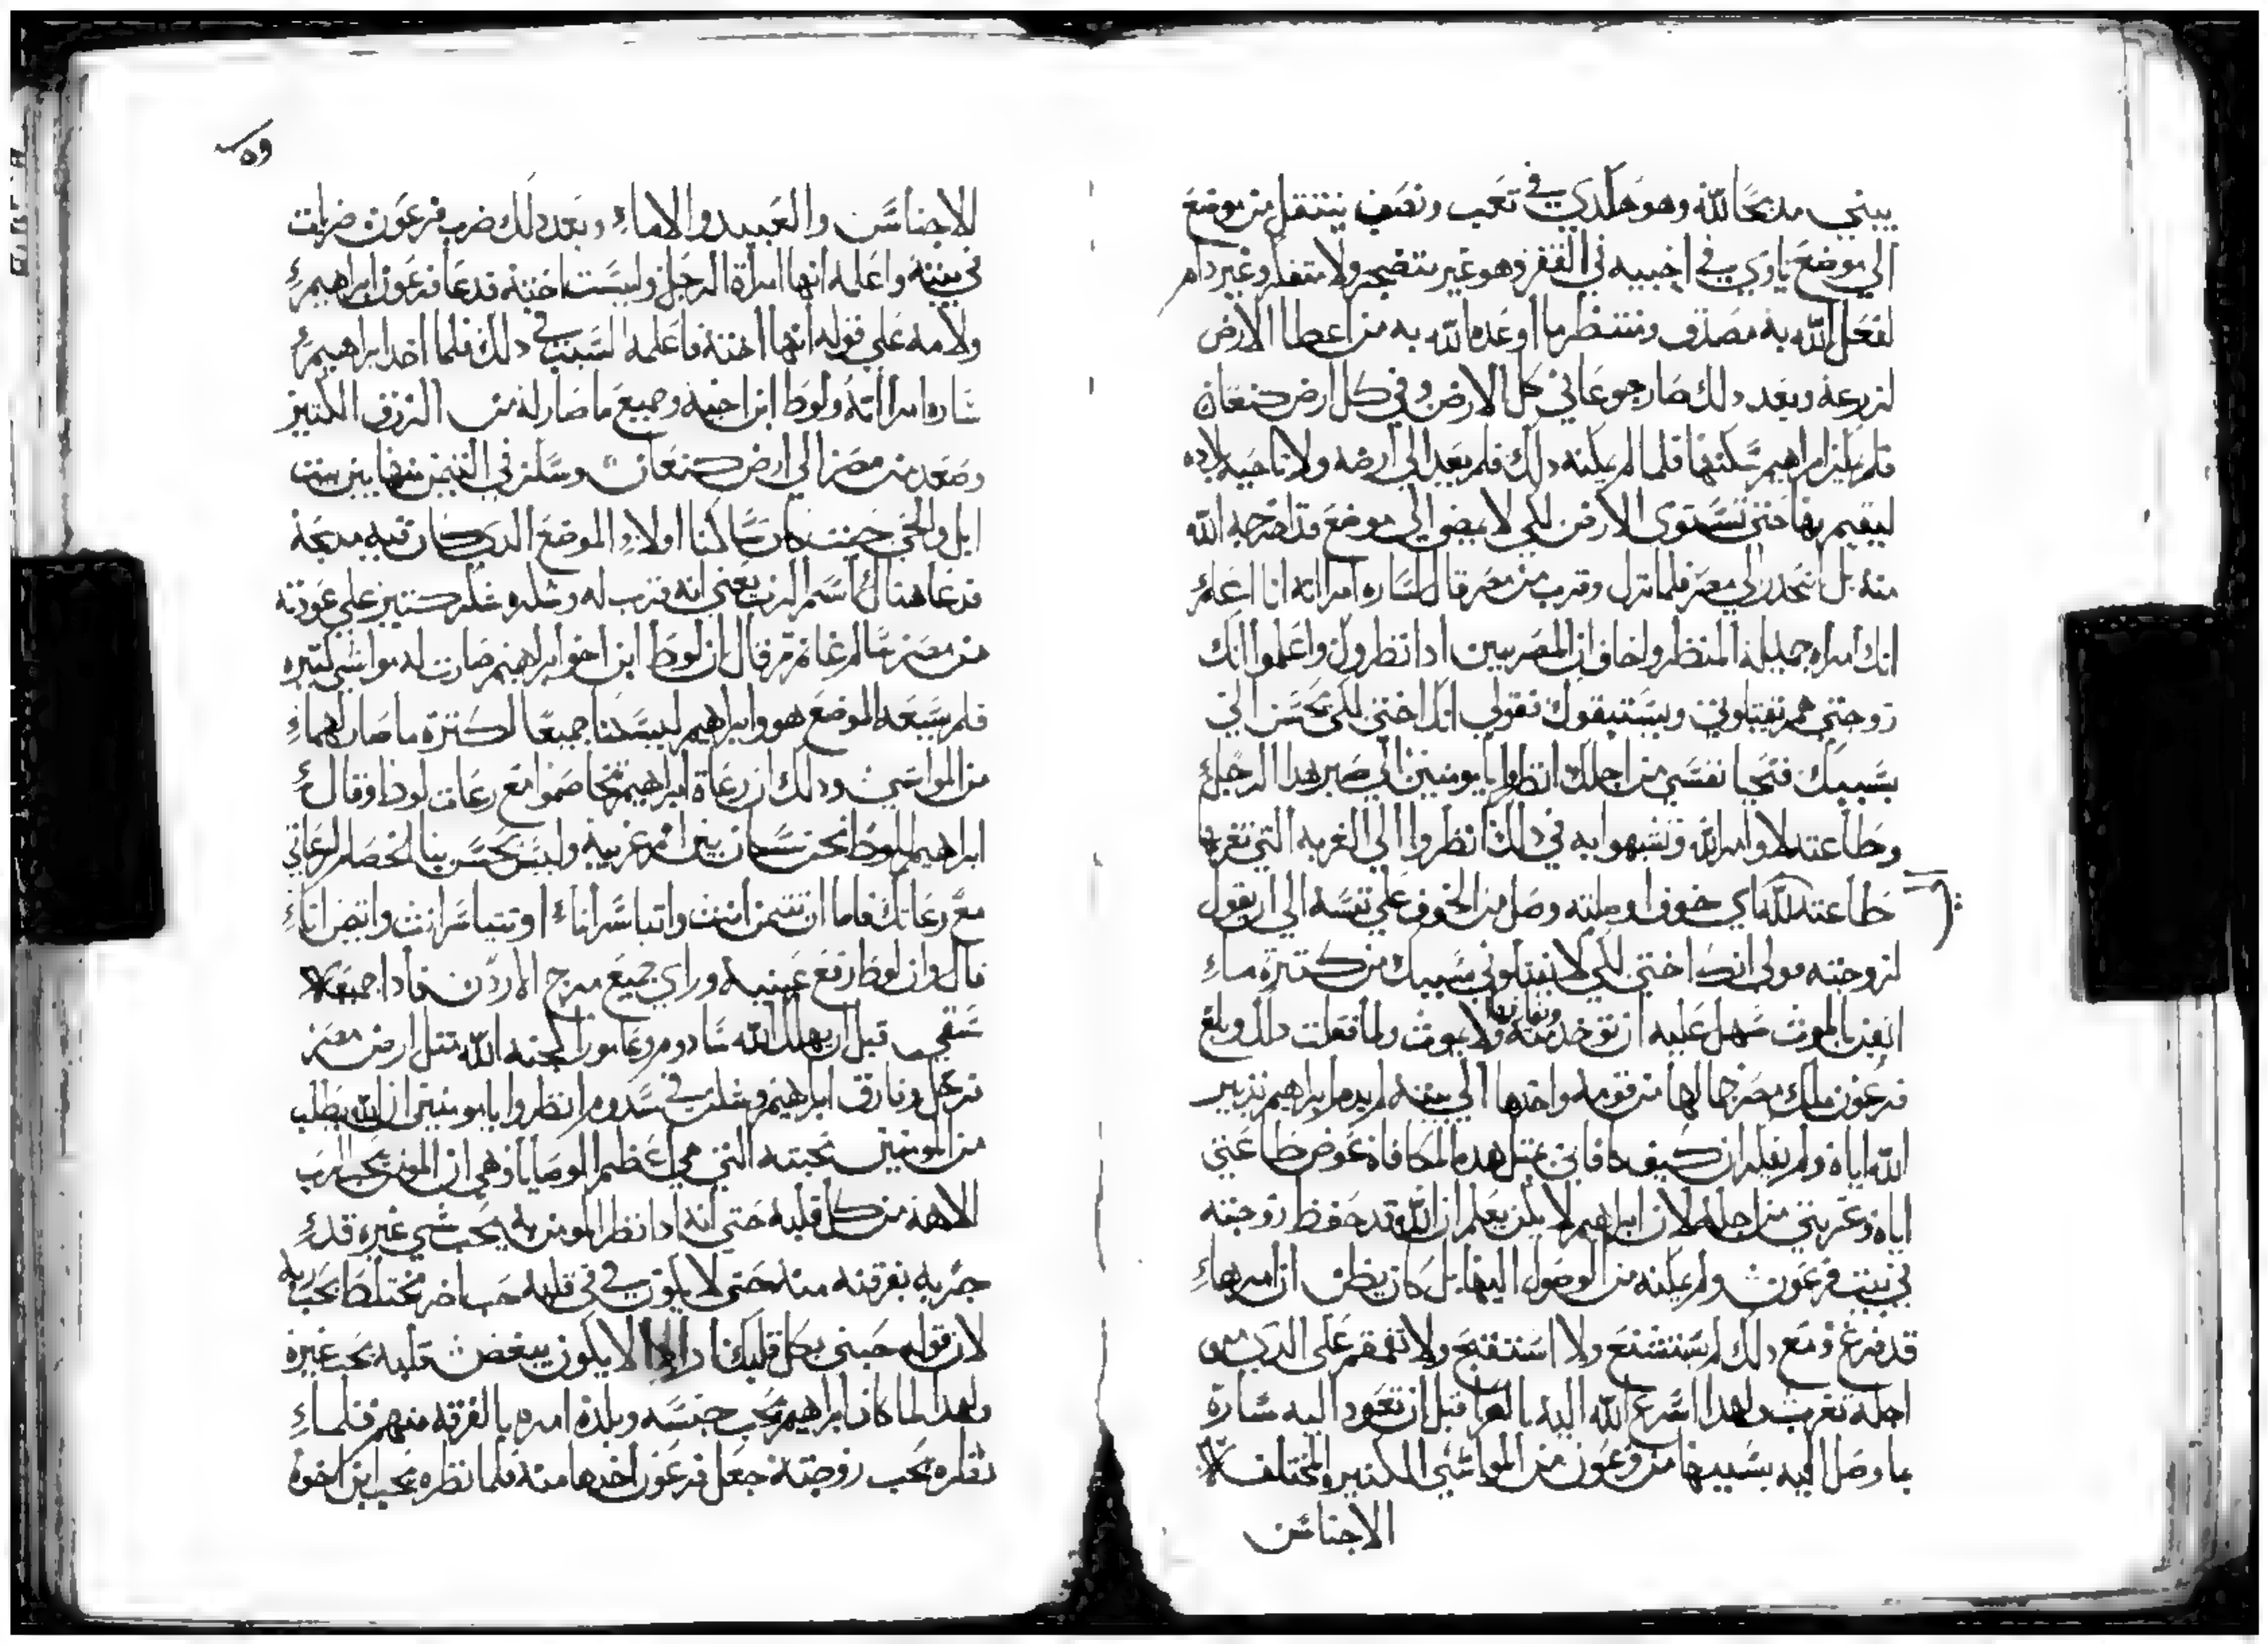 يبني مدبحًا لله وهو هكدي في تعب ونصب ينتقل من موضع
الي موضع ياوي في اخبيه في القفر وهو غير متضجر ولا متقلد وغير دام
لفعل الله به مصدق ومنتظر ما اوعده الله به من اعطا الارض
لزرعه وبعد دلك صار جوعا في كل الارض وفي كل ارض كنعان
فلم يمكن ابراهيم سكنها فلما لم يمكنه دلك فلم يعد الي ارضه ولا ناحية بلاده
ليقيم بها حتى تستوى الارض لكي لا يمضي الي موضع قد اخرجه الله
منه بل انحدر الي مصر فلما نزل وقرب من مصر قال لساره امراته انا اعلم
انك امراه جميلة المنظر واخاف ان المصريين ادا نظروكي واعلموا انك
زوجتي هم يقتلوني ويستبقوك فقولي انك اختي لكي يحسن الي
بسببك فتحيا نفسي من اجلك انظروا يا مومنين الي صبر هدا الرجل
وطاعته لاوامر الله وتشبهوا به في دلك انظروا الي الغربه التي تغربها
طاعته لله ماكي خوف اوصلته وصل من الخوف علي نفسه الي ان يقول
لزوجته قولي انك اختي لكي لا يقتلوني بسببك من كترة ما
ايقن بالموت سهل عليه ان توخد منه ولا يموت ولما فعلت دلك وبلغ
فرعون ملك مصر جمالها من قومه واخدها الي بيته لم يدم ابراهيم تدبير
الله اياه ولم يقل ان كيف كافاني بمتل هده المكافاة عوض طاعتي
اياه وغربتي من اجله لان ابراهيم لا يكن يعلم ان الله قد حفظ زوجته
في بيت فرعون ولم يمكنه من الوصول اليها بل كان يظن ان امرها
قد فرغ ومع دلك لم يستشنع ولا استقبح ولا تقمقم علي الدي من
اجله تغرب ولهدا اسرع الله اليه بالعزا قبل ان تعود اليه سارة
بما وصل اليه بسببها من فرعون من المواشي الكتير والمختلف
الاجناس
الاجناس والعبيد والاماء وبعد دلك ضرب فرعون ضربات
في بيته واعلمه انها امراة الرجل وليست اخته فدعا فرعون ابراهيم
ولامه علي قوله انها اخته فاعلمه السبب في دلك فلما اخد ابراهيم
ساره امراته ولوط ابن اخيه وجميع ما صار له من الرزق الكتير
وصعد من مصر الي ارض كنعان وسكن في التيمن منها بين بيت
ايل والحي حيت كان ساكنا اولا والموضع الدي كان فيه مدبحه
فدعا هناك اسم الرب يعني انه قرب له وشكره شكر كتير علي عودته
من مصر سالم غانم تم قال ان لوط ابن اخو ابراهيم صارت له مواشي كتيره
فلم يسعه الموضع هو وابراهيم ليسكنا جميعًا لكترة ما صار لهما
من المواشي ودلك ان رعاة ابراهيم تخاصموا مع رعاة لوط وقال
ابراهيم للوط نحن سكان بين امم غريبه وليس يحسن بنا الخصام لرعاتي
مع رعاتك فاما ان تتيمن انت واتياسر اناء او تتياسر انت واتيمن اناء
قال وان لوط رفع عينيه وراي جميع مرج الاردن فادا جميعه
سقي قبل ان يهلك الله سادوم وعامورا كجنه الله متل ارض مصر
فرحل وفارق ابراهيم وسكن في سدوم انظروا يا مومنين ان الله يطلب
من المومنين محبته التي هي اعظم الوصايا وهي ان المومن يحب الرب
الاهه من كل قلبه حتي انه ادا نظر المومن به يحب شي غيره قد
جربه بفرقته منه حتي لا يكون في قلبه حب اخر مختلط بحب ربه
لان قوله حبني بكل قلبك اراد الا يكون يبغض قلبه يحب غيره
ولهدا لما كان ابراهيم يحب جنسه وبلده امره بالفرقه منهم فلماء
نظره يحب زوجته جعل فرعون اخدها منه فلما نظره يحب ابن اخوه